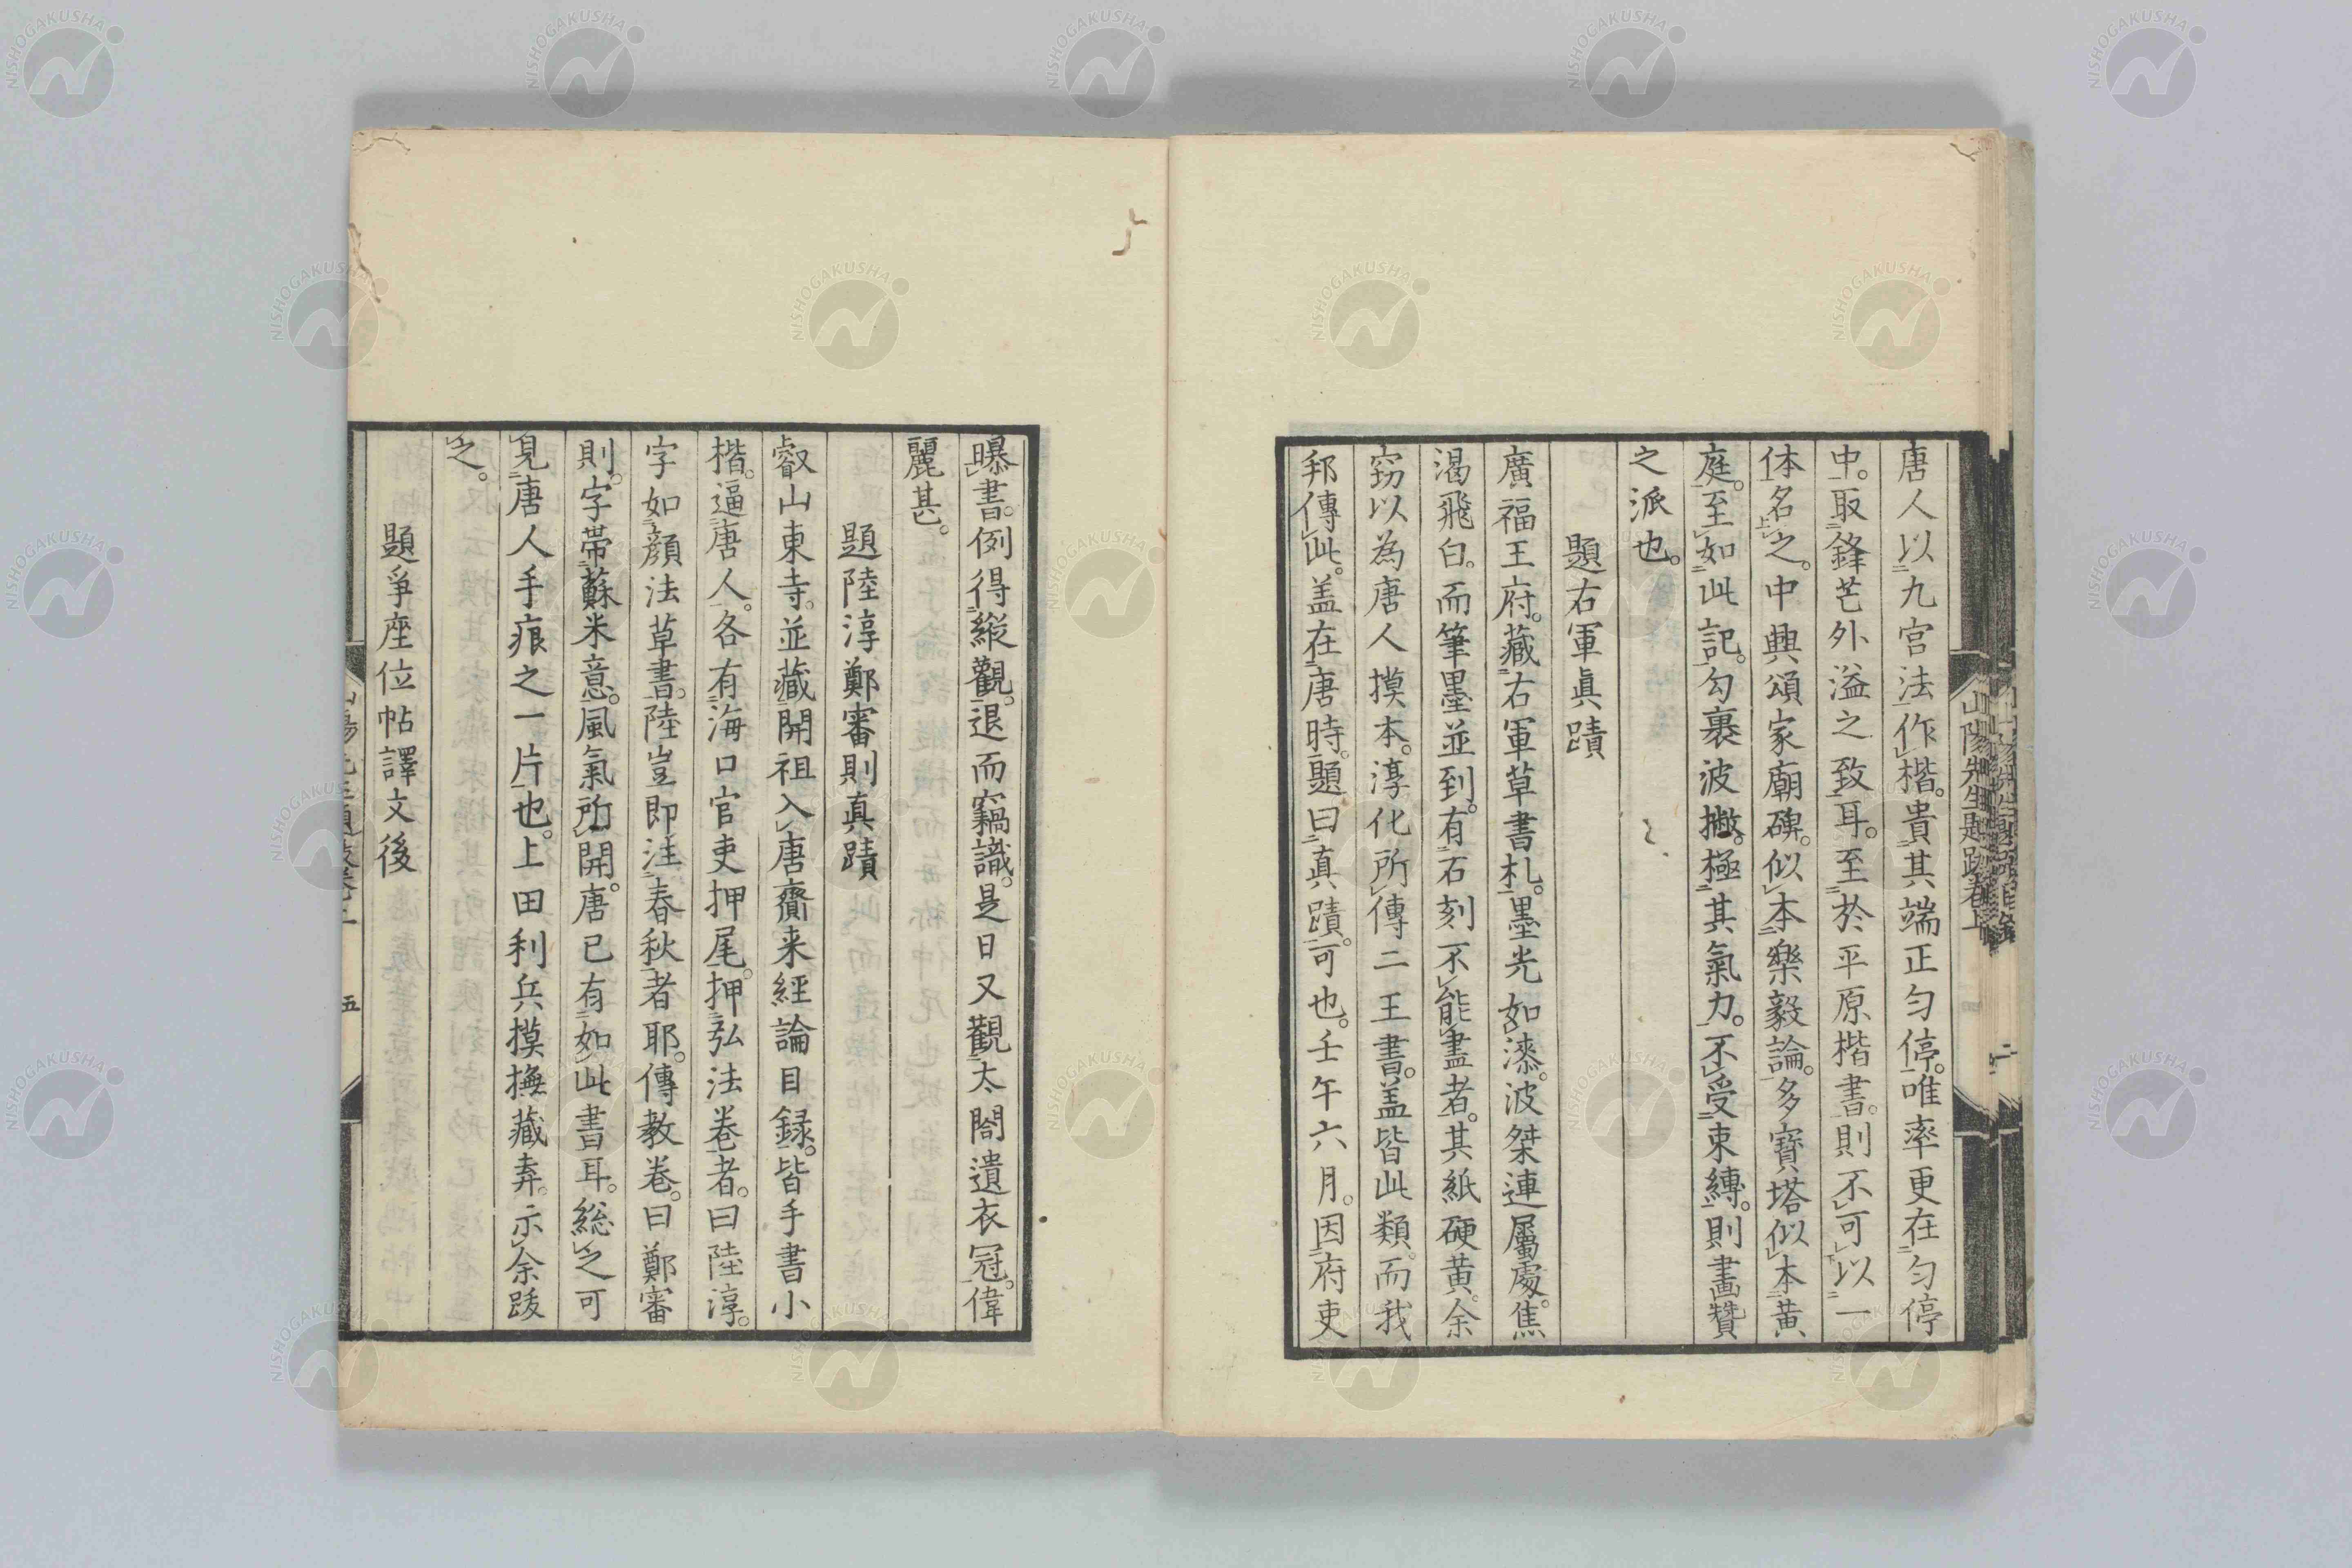 唐人以九宮法作楷。貴其端正勻停。唯率更在勻停
中。取鋒芒外溢之致耳。至於平原楷書。則不可以一
体名之。中興頌家廟碑。似本樂毅論。多寶塔似本黃
庭。至如此記。勾裹波撇。極其氣力。不受束縛。則畫贊
之派也。
題右軍眞蹟
廣福王府。藏右軍草書札。墨光如漆。波桀連屬處。焦
渴飛白。而筆墨並到。有石刻不能盡者。其紙硬黃。余
窃以為唐人摸本。淳化所傳二王書。盖皆此類。而我
邦傳此。盖在唐時。題曰眞蹟。可也。壬午六月。因府吏
曝書。例得縱觀。退而竊識。是日又觀太閤遺衣冠。偉
麗甚。
題陸淳鄭審則真蹟
叡山東寺。並藏開祖入唐齎来經論目録。皆手書小
楷。逼唐人。各有海口官吏押尾。押弘法卷者。曰陸淳。
字如顏法草書。陸豈即注春秋者耶。傳教卷。曰鄭審
則。字帶蘇米意。風氣所開。唐已有如此書耳。総之可
見唐人手痕之一片也。上田利兵摸撫藏弆。示余跋
之。
題爭座位帖譯文後
山陽先生題跋卷上
五
NISHOGAKUSHA